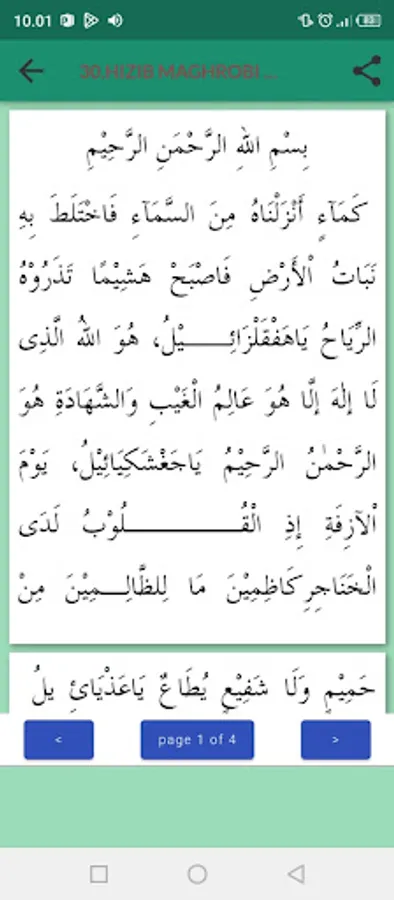 10.01
30.HIZIB MAGHROBI ...
بِسْمِ اللهِ الرَّحْمَنِ الرَّحِيْمِ
كَمَآءٍ أَنْزَلْنَاهُ مِنَ السَّمَآءِ فَاخْتَلَطَ بِهِ
نَبَاتُ اْلأَرْضِ فَاصْبَحْ هَشِيْمًا تَذَرُوْهُ
الرِّيَاحُ يَاهَفْقَلْزَائِـــــيْلُ، هُوَ اللهُ الَّذِى
لَا إِلٰهَ إِلَّا هُوَ عَالِمُ الْغَيْبِ وَالشَّهَادَةِ هُوَ
الرَّحْمٰنُ الرَّحِيْمُ يَاجَغْشَكِيَائِيْلُ، يَوْمَ
اْلآزِفَةِ إِذِ الْقُـــــــــــــلُوْبُ لَدَى
الْخَنَاجِرِ كَاظِمِيْنَ مَا لِلظَّالِـــمِيْنَ مِنْ
حَمِيْمٍ وَلَا شَفِيْعٍ يُطَاعٌ يَاعَذْيَائِ يلُ
< page 1 of 4 >